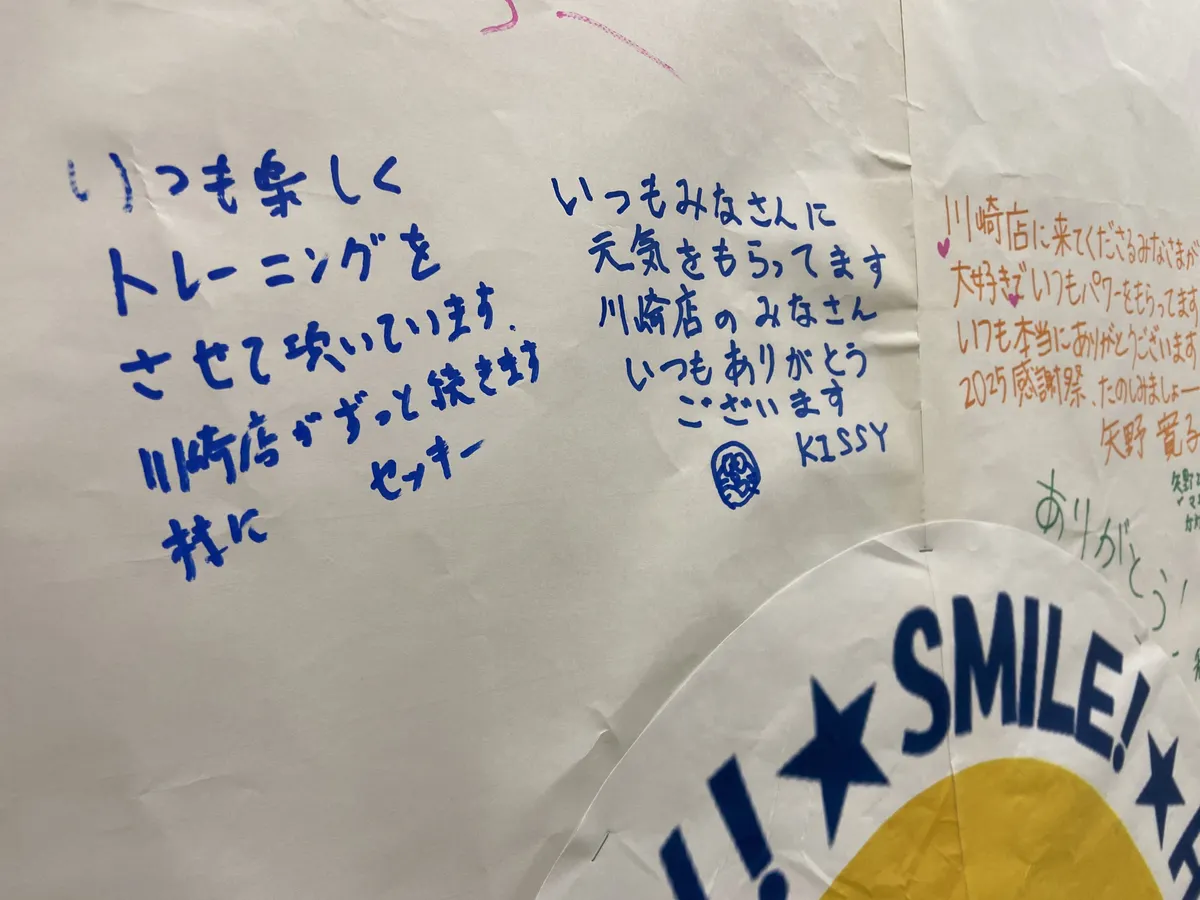 いつも楽しく
トレーニングを
させて頂いています.
川崎店がずっと続きます
様に
セッキー
いつもみなさんに
元気をもらってます
川崎店のみなさん
いつもありがとう
ございます
KISSY
川崎店に来てくださるみなさまが
大好きでいつもパワーをもらってます
いつも本当にありがとうございます
2025感謝祭、たのしみましょー
矢野 寛
ありがとう!
SMILE!